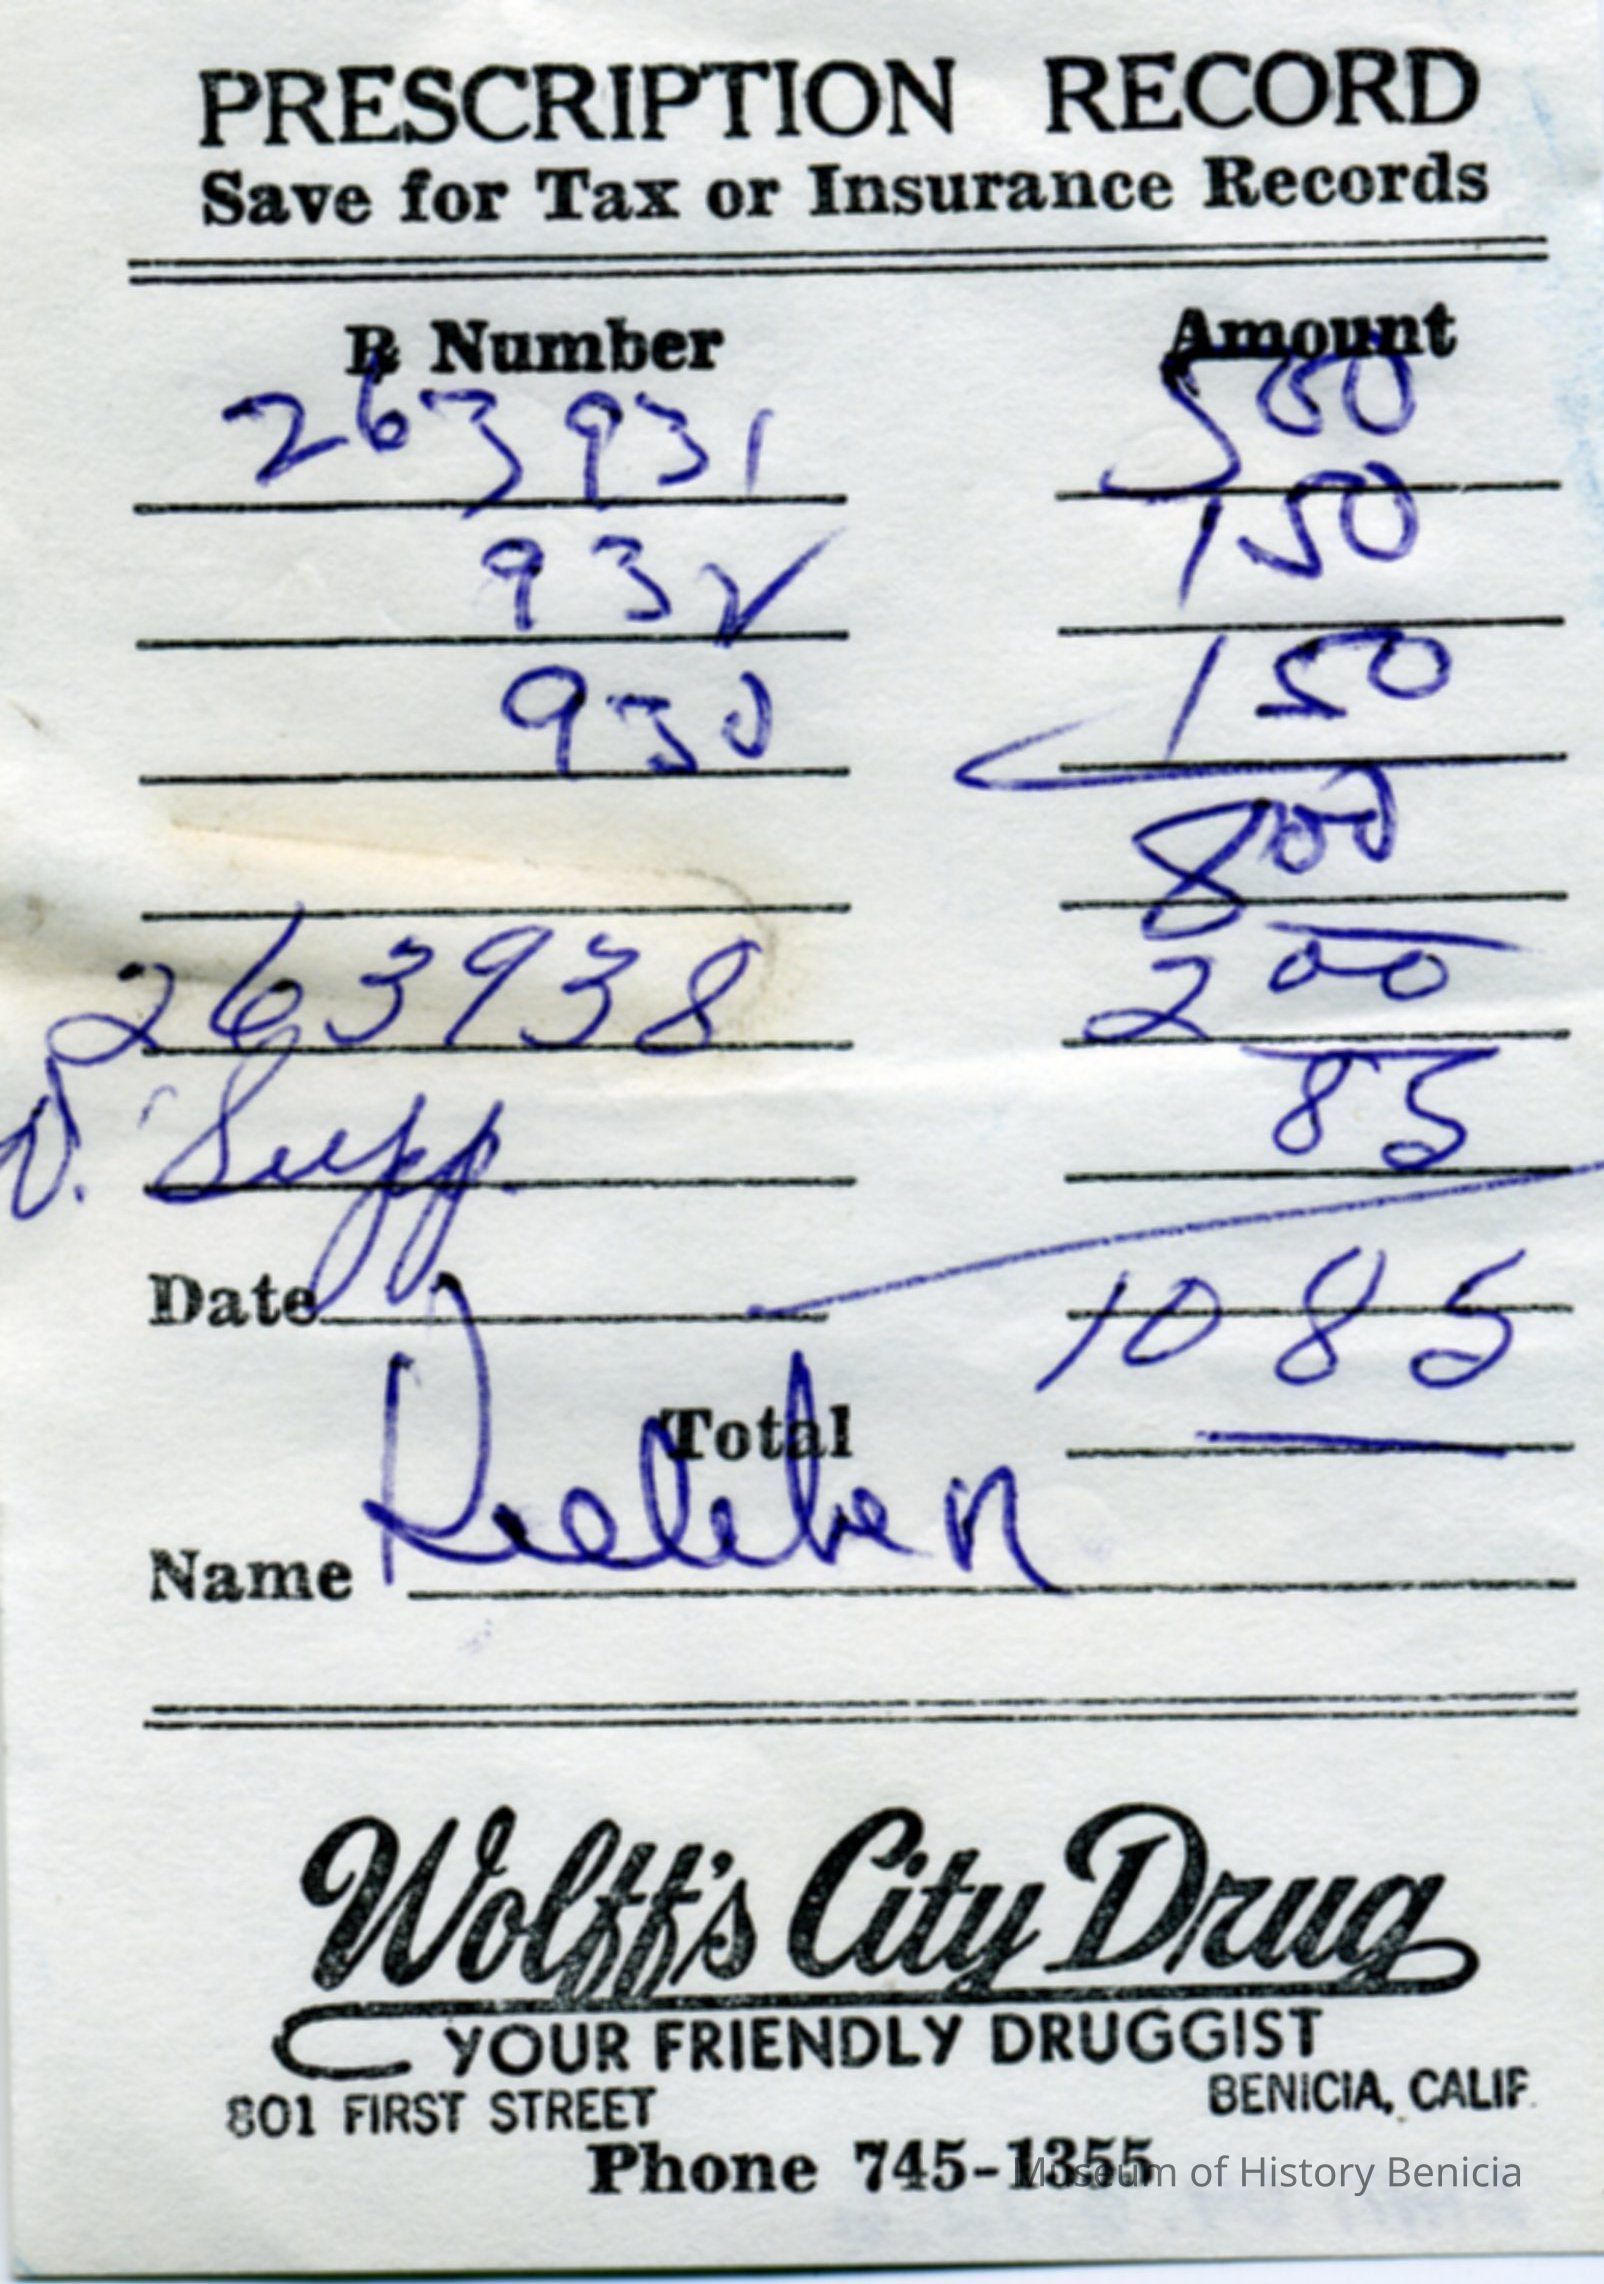 PRESCRIPTION RECORD
Save for Tax or Insurance Records
℞ Number Amount
263931 500
932 150
930 150
800
263938 200
Supp. 85
Date 10 85
Total
Name
Wolff's City Drug
YOUR FRIENDLY DRUGGIST
801 FIRST STREET BENICIA, CALIF.
Phone 745-1355
Museum of History Benicia